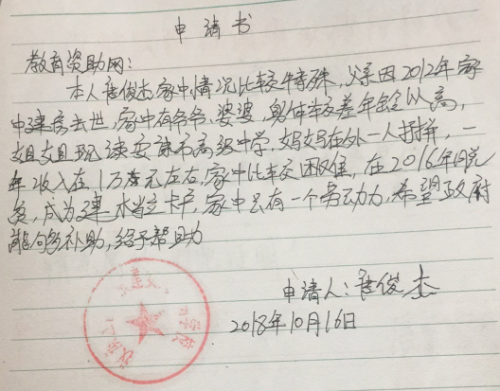 申请书
教育资助网：
本人唐俊杰家中情况比较特殊，父亲因2012年家
中建房去世，家中有爷爷、婆婆，身体较差年龄以高，
姐姐现读安康市高级中学，妈妈在外一人打拼，一
年收入在1万元左右，家中比较困难，在2016年脱
贫，成为建档立卡户，家中只有一个劳动力，希望政府
能够补助，给予帮助
申请人：唐俊杰
2018年10月16日